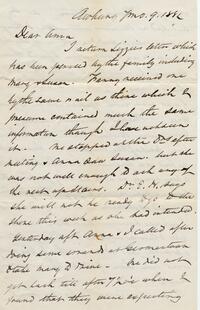 Dear Anna
I return Lizzies letter which
has been perused by the family including
Mary & Susan. Fanny received one
by the same mail as there which I
presume contained much the same
information though I have not seen
it. We stopped at the D's after
meeting & Anna saw Susan. but she
was not well enough to ask any of
the rest upstairs. Dr. E. H. says
she will not be ready to go to the
shore this week as she had intended.
Yesterday aft. Anna & I called after
doing some errands at Germantown
& take Mary to Mine. We did not
get back till after 7 when I
found that they were expecting